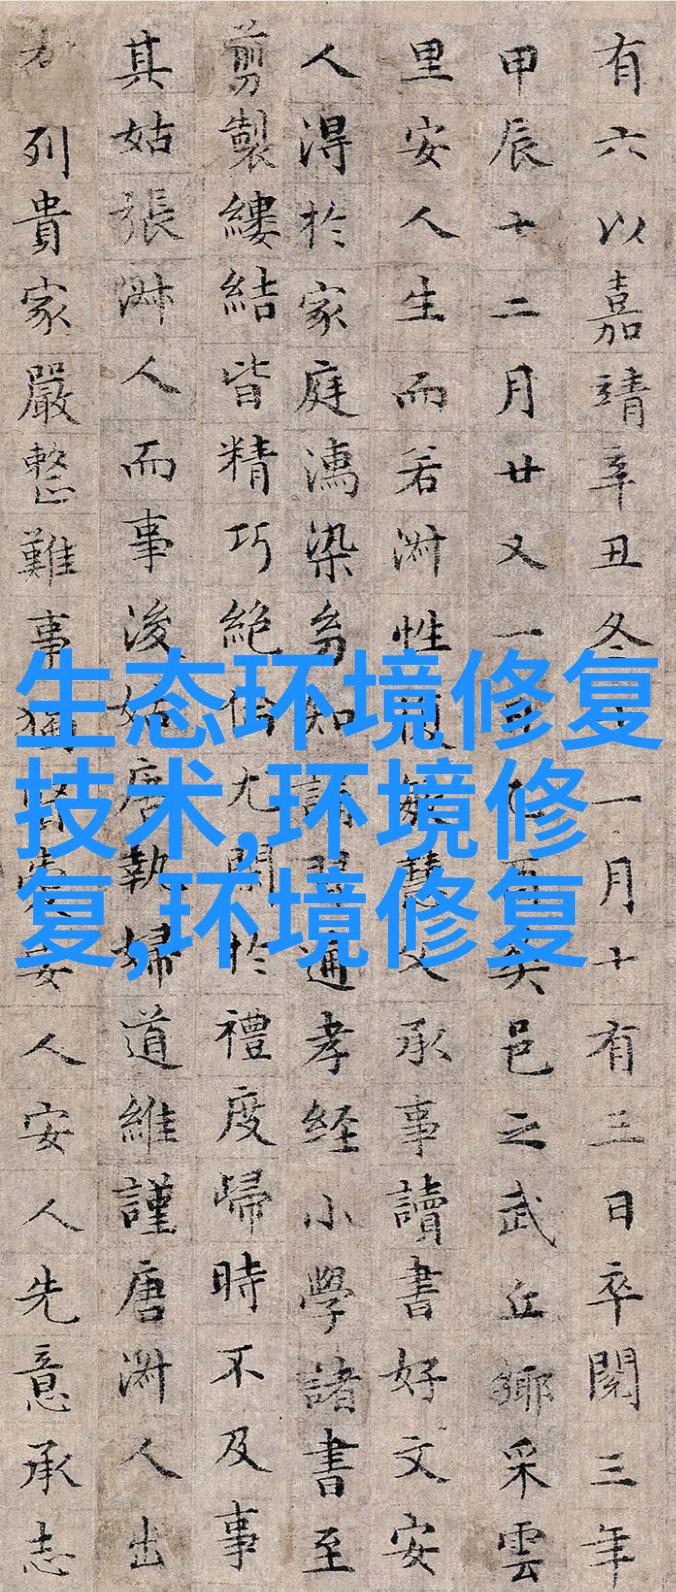 有六以嘉靖辛丑冬十一月十有三日卒閱三年
甲辰十二月廿又一日
邑之武丘鄉采雲
里安人生而若淑性
敏慧父承事讀書好文安
人淂於家庭濡染多知
通孝经小學諸書至
剪製縷結皆精巧絶倫尤閑於禮度歸時不及事
其姑張淋人而事後姑唐執婦道維謹唐淋人出
列貴家嚴整難事獨
安人安人先意承志
生态环境修复
技术,环境修
复,环境修复